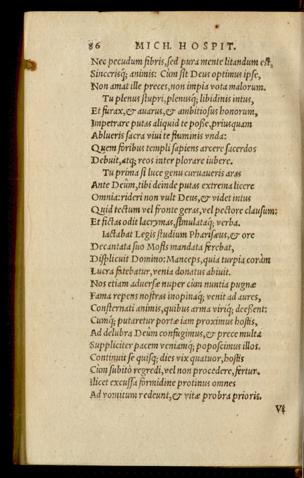 86 MICH. HOSPIT.
Nec pecudum fibris, sed pura mente litandum est,
Sincerisq; animis: Cùm sit Deus optimus ipse,
Non amat ille preces, non impia vota malorum.
Tu plenus stupri, plenusq; libidinis intus,
Et furax, & auarus, & ambitiosus honorum,
Impetrare putas aliquid te posse, priusquam
Ablueris sacra viui te fluminis vnda:
Quem foribus templi sapiens arcere sacerdos
Debuit, atq; reos inter plorare iubere.
Tu prima si luce genu curuaueris aras
Ante Deûm, tibi deinde putas extrema licere
Omnia: rideri non vult Deus, & videt intus
Quid tectum vel fronte geras, vel pectore clausum:
Et fictas odit lacrymas, simulataq; verba.
Iactabat Legis studium Phariseus, & ore
Decantata suo Mosis mandata ferebat,
Displicuit Domino: Manceps, quia turpia coràm
Lucra fatebatur, venia donatus abiuit.
Nos etiam aduersæ nuper cùm nuntia pugnæ
Fama repens nostras inopinaq; venit ad aures,
Consternati animis, quibus arma viriq; deessent:
Cumq; putaretur portæ iam proximus hostis,
Ad delubra Deûm confugimus, & prece multa
Suppliciter pacem veniamq; poposcimus illos.
Continuit se quisq; dies vix quatuor, hostis
Cùm subitò regredi, vel non procedere, fertur.
Ilicet excussa formidine protinus omnes
Ad vomitum redeunt, & vitæ probra prioris.